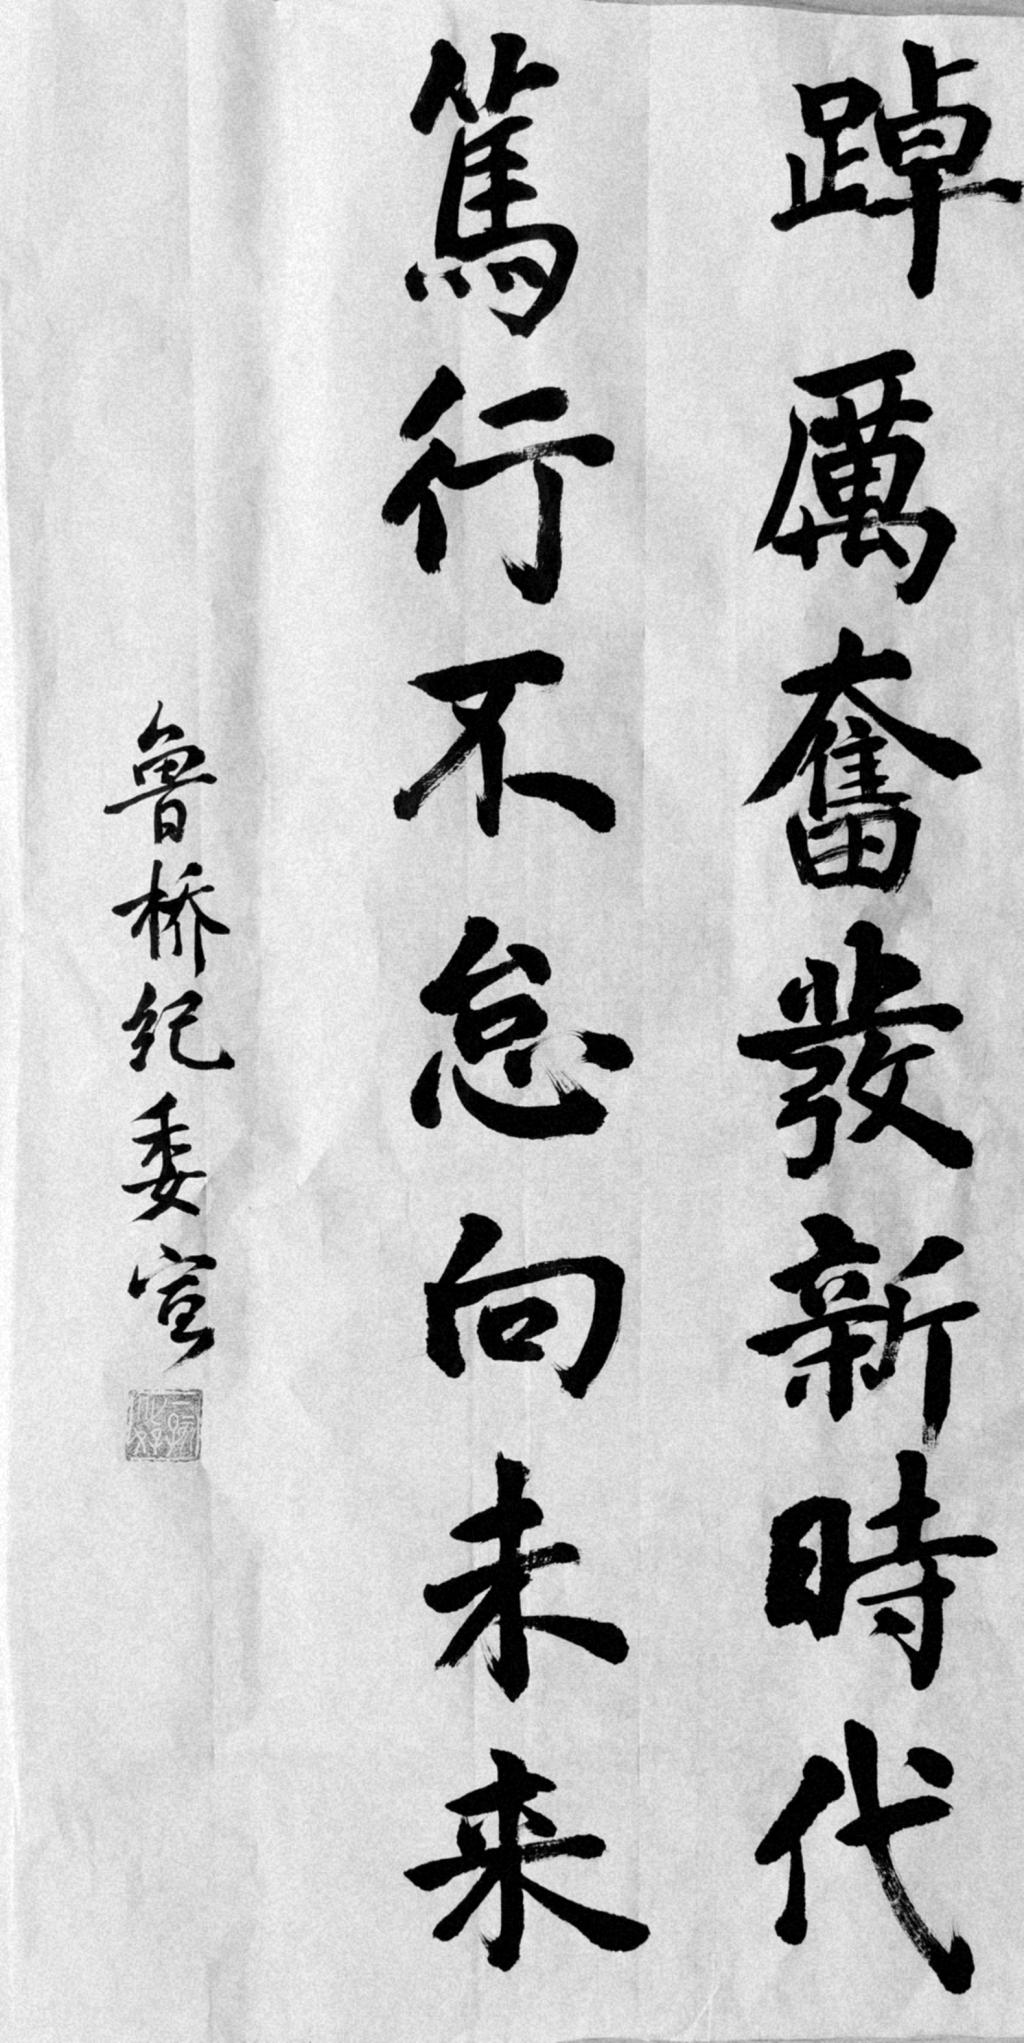 踔厲奮發新時代
篤行不怠向未来
鲁桥纪委宣